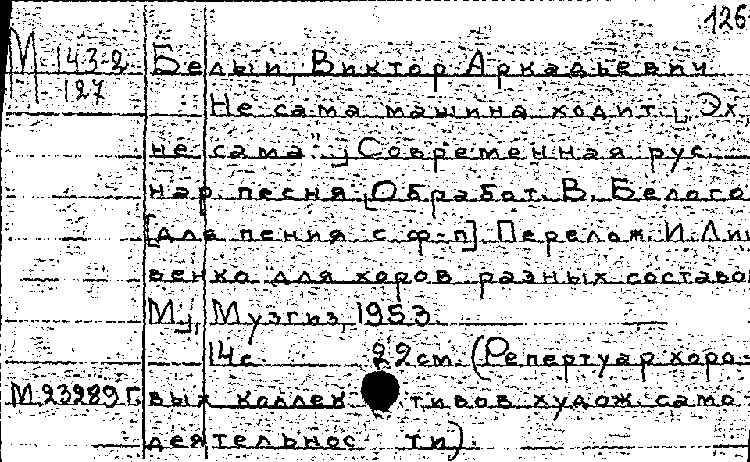 126
М 143-2 Белый, Виктор Аркадьевич
127
Не сама машина ходит „Эх,
не сама". Современная рус.
нар. песня. Обработ. В. Белого
[для пения с ф-п]. Перелож. И. Ли
венко для хоров разных составо
М., Музгиз, 1953.
14с. 22см. (Репертуар хоро-
М23289г. вых коллективов худож. само-
деятельности)